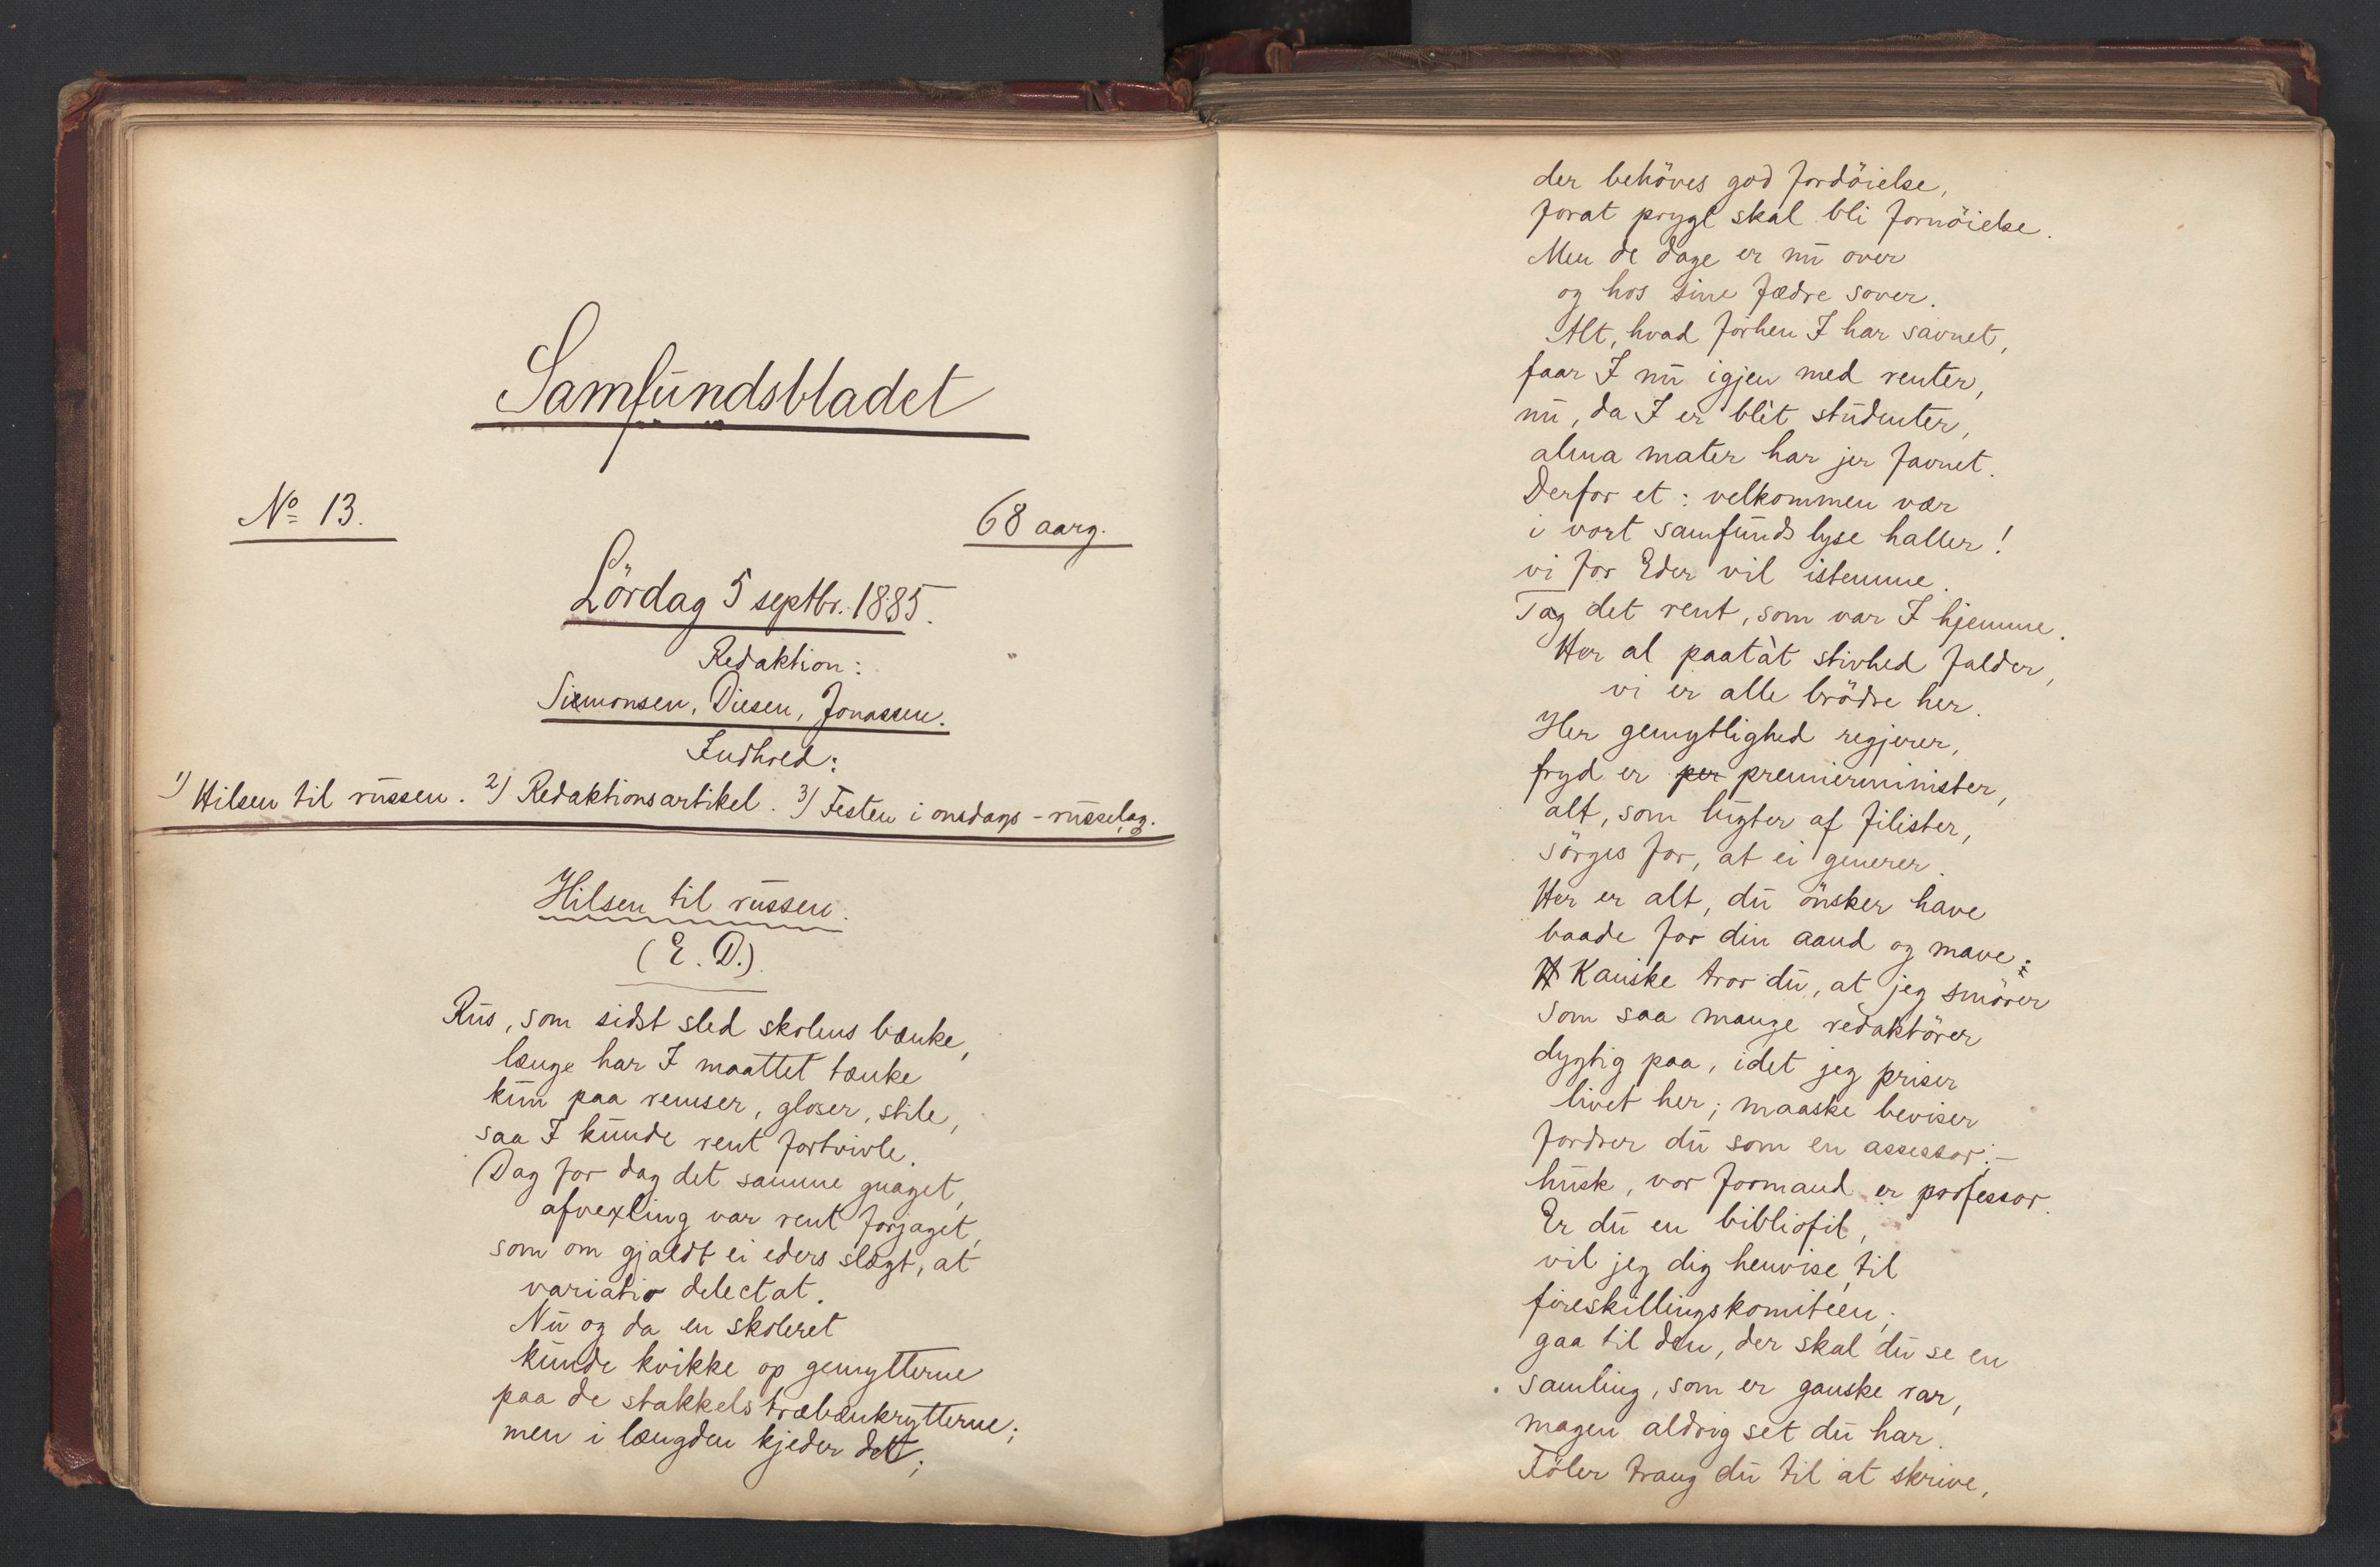 Samfundsbladet
No 13.
68 aarg.
Lördag 5 septbr. 1885.
Redaktion:
Siemonsen, Diesen, Jonassen.
Indhold:
1) Hilsen til russen. 2) Redaktionsartikel. 3) Festen i onsdags-russelag.
Hilsen til russen.
(E. D.)
Rus, som sidst sled skolens bænke,
længe har I maattet tænke
kun paa remser, gloser, stile,
saa I kunde rent fortvivle.
Dag for dag det samme gnaget,
afvexling var rent forjaget,
som om gjaldt ei eders slægt, at
variatio delectat.
Nu og da en skoleret
kunde kvikke op gemytterne
paa de stakkels træbænkrytterne;
men i længden kjeder det;
der behöves god fordöielse,
forat prygl skal bli fornöielse.
Men de dage er nu over
og hos sine fædre sover.
Alt, hvad forhen I har savnet,
faar I nu igjen med renter,
nu, da I er blit studenter,
alma mater har jer favnet.
Derfor et: velkommen vær
i vort samfunds lyse haller!
vi for Eder vil istemme.
Tag det rent, som var I hjemme.
Her al paatat stivhed falder,
vi er alle brödre her.
Her gemytlighed regjerer,
fryd er per premierminister,
alt, som lugter af filister,
sörges for, at ei generer.
Her er alt, du önsker have
baade for din aand og mave:
H Kanske tror du, at jeg smörer
som saa mange redaktörer
dygtig paa, idet jeg priser
livet her; maaske beviser
fordrer du som en assessor; –
husk, vor formand er professor.
Er du en bibliofil,
vil jeg dig henvise til
fireskillingskomiteen;
gaa til den, der skal du se en
samling, som er ganske rar,
magen aldrig set du har.
Föler trang du til at skrive,